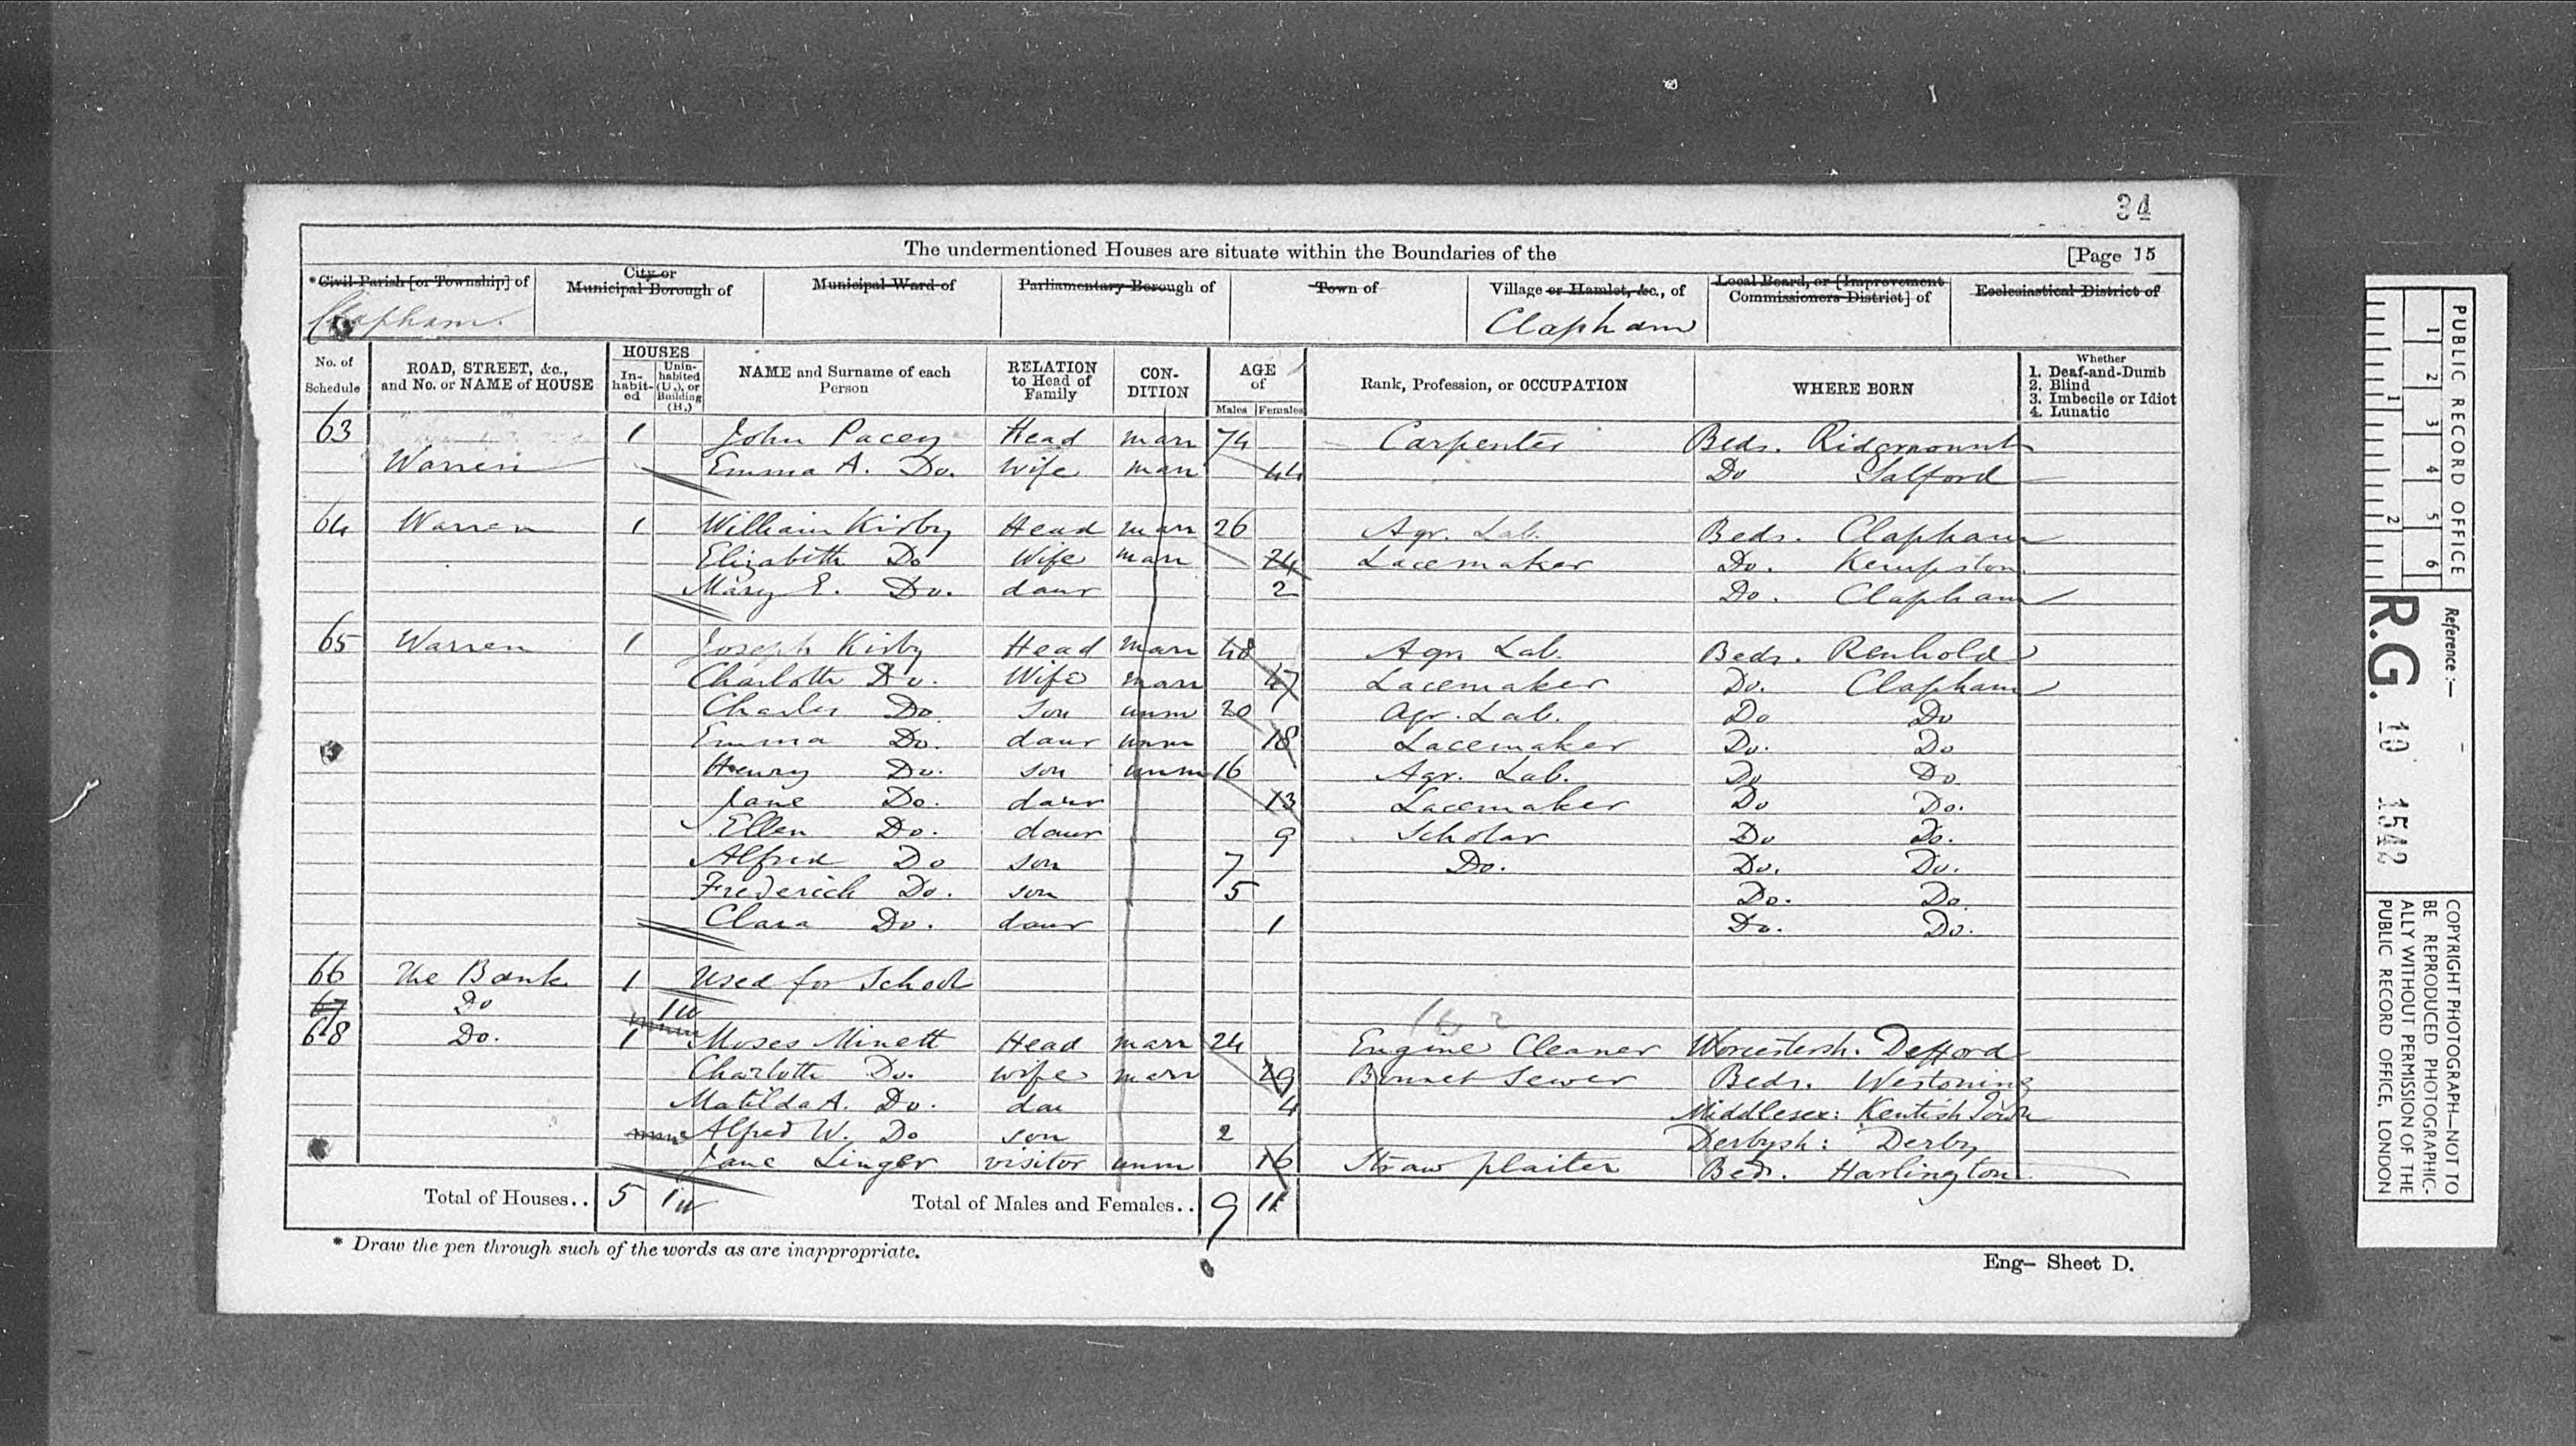 34
The undermentioned Houses are situate within the Boundaries of the [Page 15
*Civil Parish [or Township] of
City or Municipal Borough of
Municipal Ward of
Parliamentary Borough of
Town of
Village or Hamlet, &c., of
Local Board, or [Improvement Commissioners District] of
Ecclesiastical District of
Clapham. Clapham
No. of Schedule
ROAD, STREET, &c., and No. or NAME of HOUSE
HOUSES
In-habit-ed
Unin-habited (U.), or Building (B.)
NAME and Surname of each Person
RELATION to Head of Family
CON-DITION
AGE of
Males Females
Rank, Profession, or OCCUPATION
WHERE BORN
Whether
1. Deaf-and-Dumb
2. Blind
3. Imbecile or Idiot
4. Lunatic
63 1 John Pacey Head marr 74 Carpenter Beds. Ridgmount
Warren Emma A. Do. wife marr 44 Do Salford
64 Warren 1 William Kirby Head marr 26 Agr. Lab. Beds. Clapham
Elizabeth Do Wife marr 24 Lacemaker Do. Kempston
Mary E. Do. daur 2 Do. Clapham
65 Warren 1 Joseph Kirby Head marr 48 Agr. Lab. Beds. Renhold
Charlotte Do. Wife marr 47 Lacemaker Do. Clapham
Charles Do. Son unm 20 Agr. Lab. Do Do
Emma Do. daur unm 18 Lacemaker Do. Do
Henry Do. son unm 16 Agr. Lab. Do Do
Jane Do. daur 13 Lacemaker Do Do.
Ellen Do. daur 9 Scholar Do Do.
Alfred Do son 7 Do. Do. Do.
Frederick Do. son 5 Do. Do.
Clara Do. daur 1 Do. Do.
66 The Bank 1 Used for School
67 Do 1u
68 Do. 1 Moses Minett Head marr 24 Engine Cleaner Worcestersh. Defford
Charlotte Do. wife marr 29 Bonnet Sewer Beds. Westoning
Matilda A. Do. dau 4 Middlesex: Kentish Town
Alfred W. Do son 2 Derbysh: Derby
Jane Linger visitor unm 16 Straw plaiter Beds. Harlington
Total of Houses.. 5 1u Total of Males and Females.. 9 11
* Draw the pen through such of the words as are inappropriate.
Eng- Sheet D.
PUBLIC RECORD OFFICE
1 2 3 4 5 6
1 2
Reference:-
R.G. 10 1542
COPYRIGHT PHOTOGRAPH—NOT TO BE REPRODUCED PHOTOGRAPHIC-ALLY WITHOUT PERMISSION OF THE PUBLIC RECORD OFFICE, LONDON